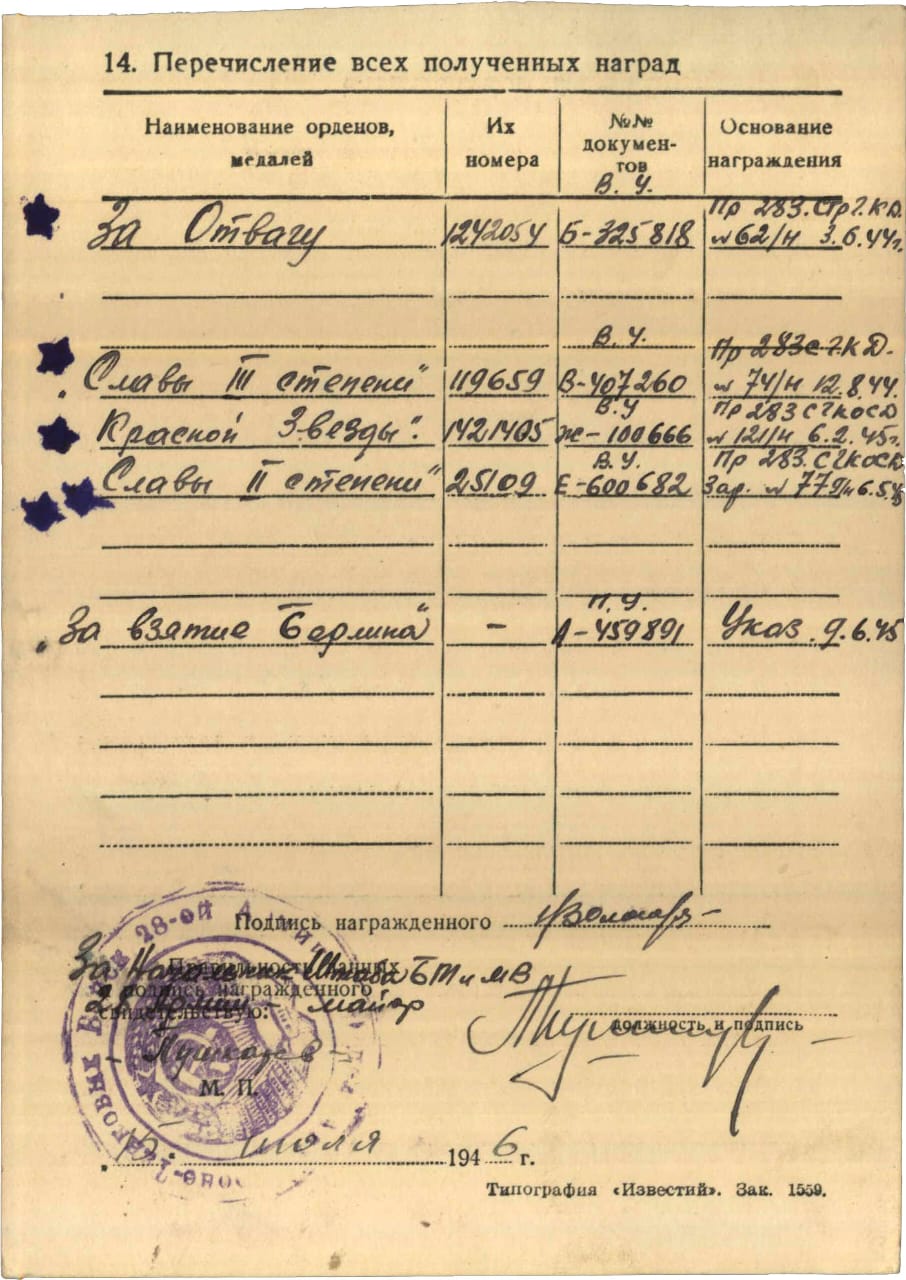 14. Перечисление всех полученных наград
Наименование орденов, медалей
Их номера
№№ документов
Основание награждения
В. У.
За Отвагу 1242054 Б-325818 Пр 283.Стр.?.К.Д. № 62/н 3.6.44г.
В. У.
„Славы III степени" 119659 В-407260 Пр 283С?КД. № 74/н 12.8.44.
В.У
Красной Звезды". 1421405 Ж-100666 Пр 283 С?КОСД № 121/н 6.2.45г.
В.У.
Славы II степени" 25109 Е-600682 Пр 283.С?КОСД
П.У.
„За взятие Берлина" – А-459891 Указ 9.6.45
Подпись награжденного
За Начальник Штаба БТ и МВ
Правильность данных
и подпись награжденного
28 Армии – майор
свидетельствую:
должность и подпись
М. П.
15 июля 1946 г.
Типография «Известий». Зак. 1559.